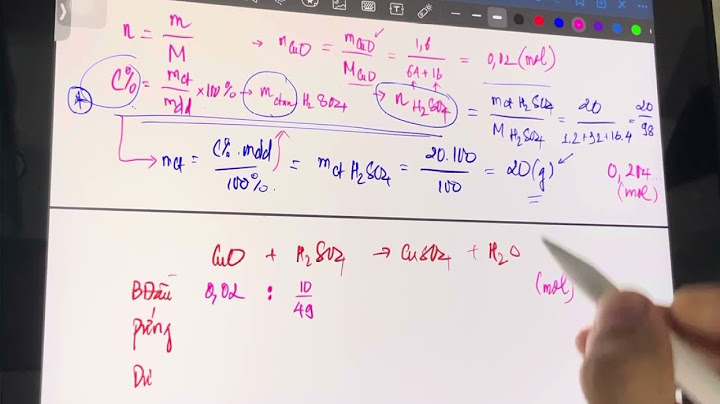 n = m/M → nCuO = mCuO/MCuO = 1,6/64+16 = 0,02 (mol)
C% = mct/mdd × 100% → mctan H2SO4 → nH2SO4 = mct H2SO4/M H2SO4 = 20/1.2+32+16.4 = 20/98
→ mct = C%.mdd/100% = mct H2SO4 = 20.100/100 = 20(g) 0,204 (mol)
CuO + H2SO4 → CuSO4 + H2O
BĐầu 0,02 : 10/49 (mol)
Pứng
Dư